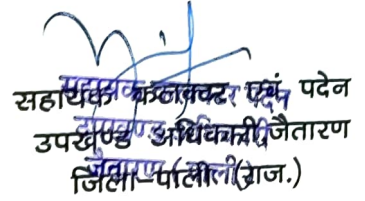 सहायक कलक्टर एवं पदेन
उपखण्ड अधिकारी, जैतारण
जिला-पाली (राज.)